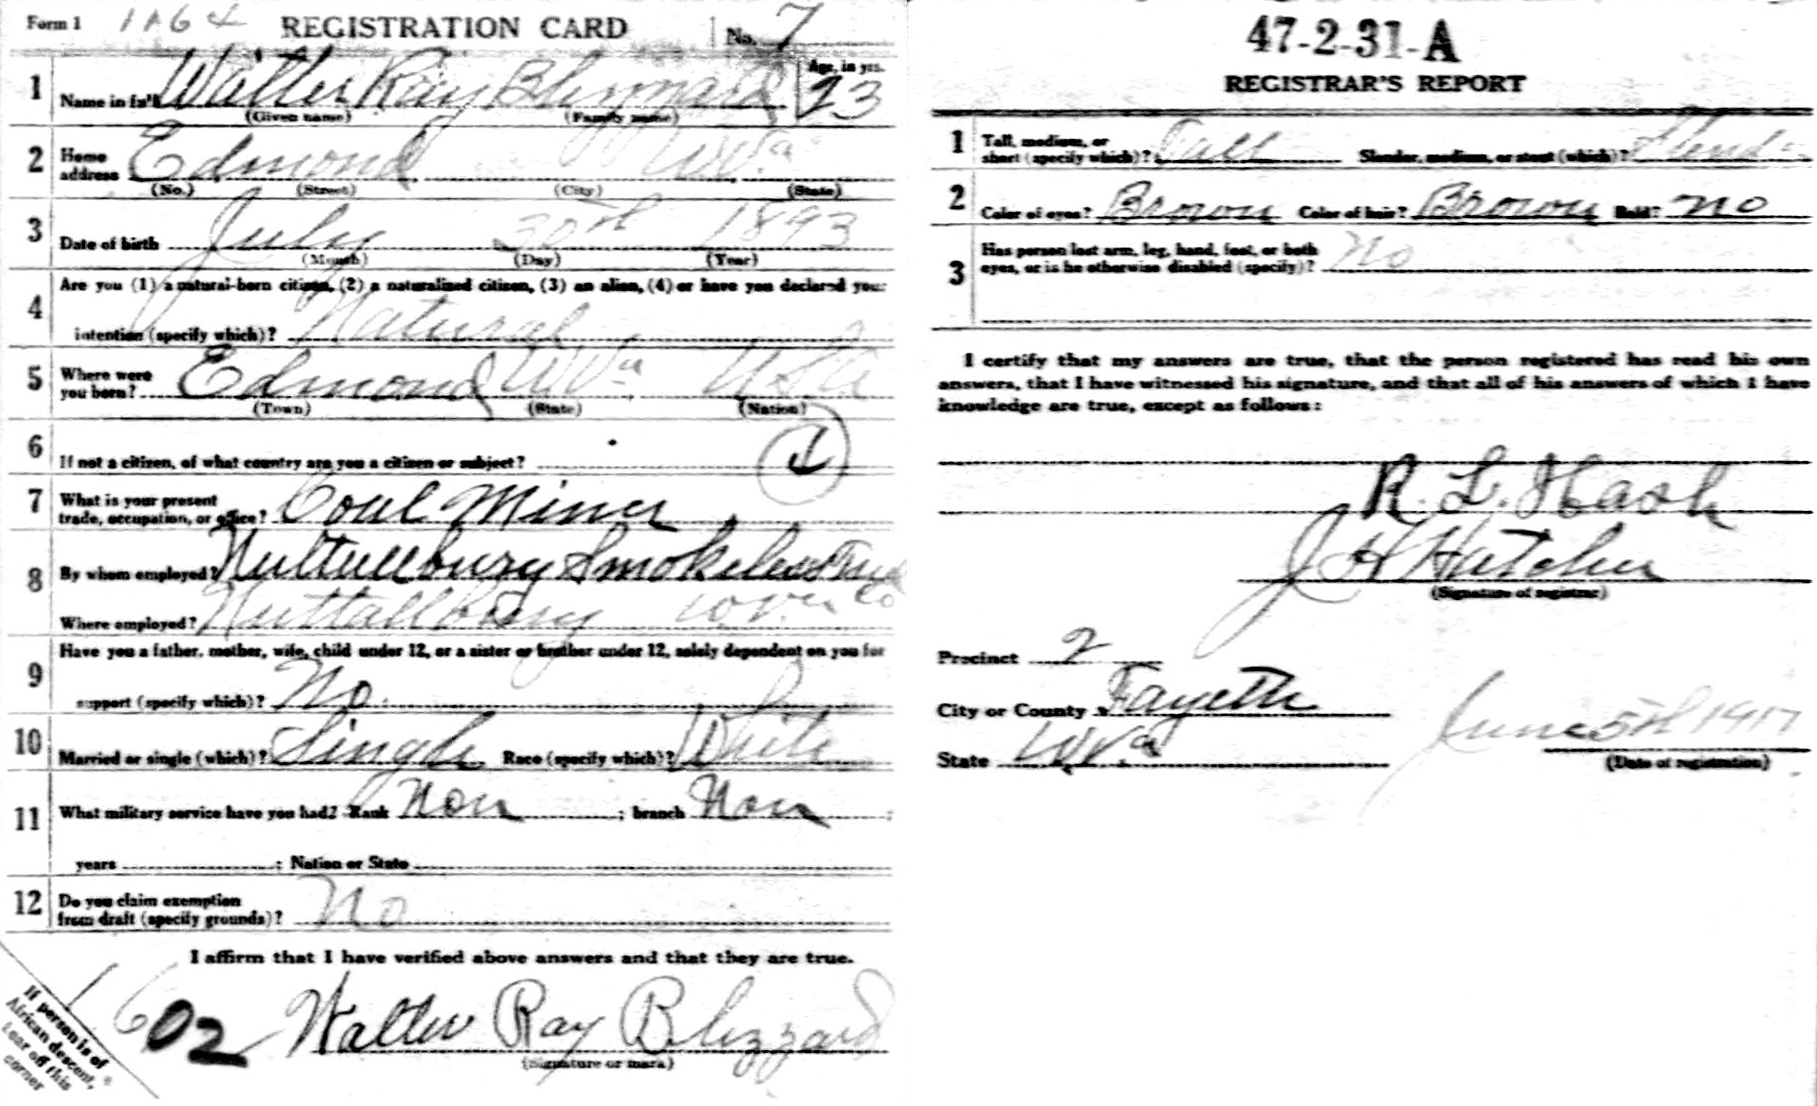 Form 1 1164 REGISTRATION CARD No. 7
1 Name in full Walter Ray Blizzard Age, in yrs. 23
(Given name) (Family name)
2 Home address Edmond W.Va
(No.) (Street) (City) (State)
3 Date of birth July 30th 1893
(Month) (Day) (Year)
4 Are you (1) a natural-born citizen, (2) a naturalized citizen, (3) an alien, (4) or have you declared your
intention (specify which)? Natural
5 Where were you born? Edmond W.Va U.S.A
(Town) (State) (Nation)
6 If not a citizen, of what country are you a citizen or subject?
7 What is your present trade, occupation, or office? Coal Miner
8 By whom employed? Nuttallburg Smokeless Fuel
Where employed? Nuttallburg W.Va Co
9 Have you a father, mother, wife, child under 12, or a sister or brother under 12, solely dependent on you for
support (specify which)? No
10 Married or single (which)? Single Race (specify which)? White
11 What military service have you had? Rank Non ; branch Non ;
years ; Nation or State
12 Do you claim exemption from draft (specify grounds)? No
I affirm that I have verified above answers and that they are true.
602 Walter Ray Blizzard
(Signature or mark)
If person is of
African descent,
tear off this
corner
47-2-31-A
REGISTRAR'S REPORT
1 Tall, medium, or short (specify which)? Tall Slender, medium, or stout (which)? Slender
2 Color of eyes? Brown Color of hair? Brown Bald? no
3 Has person lost arm, leg, hand, foot, or both eyes, or is he otherwise disabled (specify)? No
I certify that my answers are true, that the person registered has read his own
answers, that I have witnessed his signature, and that all of his answers of which I have
knowledge are true, except as follows:
R. L. Nash
J H Hatcher
(Signature of registrar)
Precinct 2
City or County Fayette
State W.Va June 5th 1917
(Date of registration)